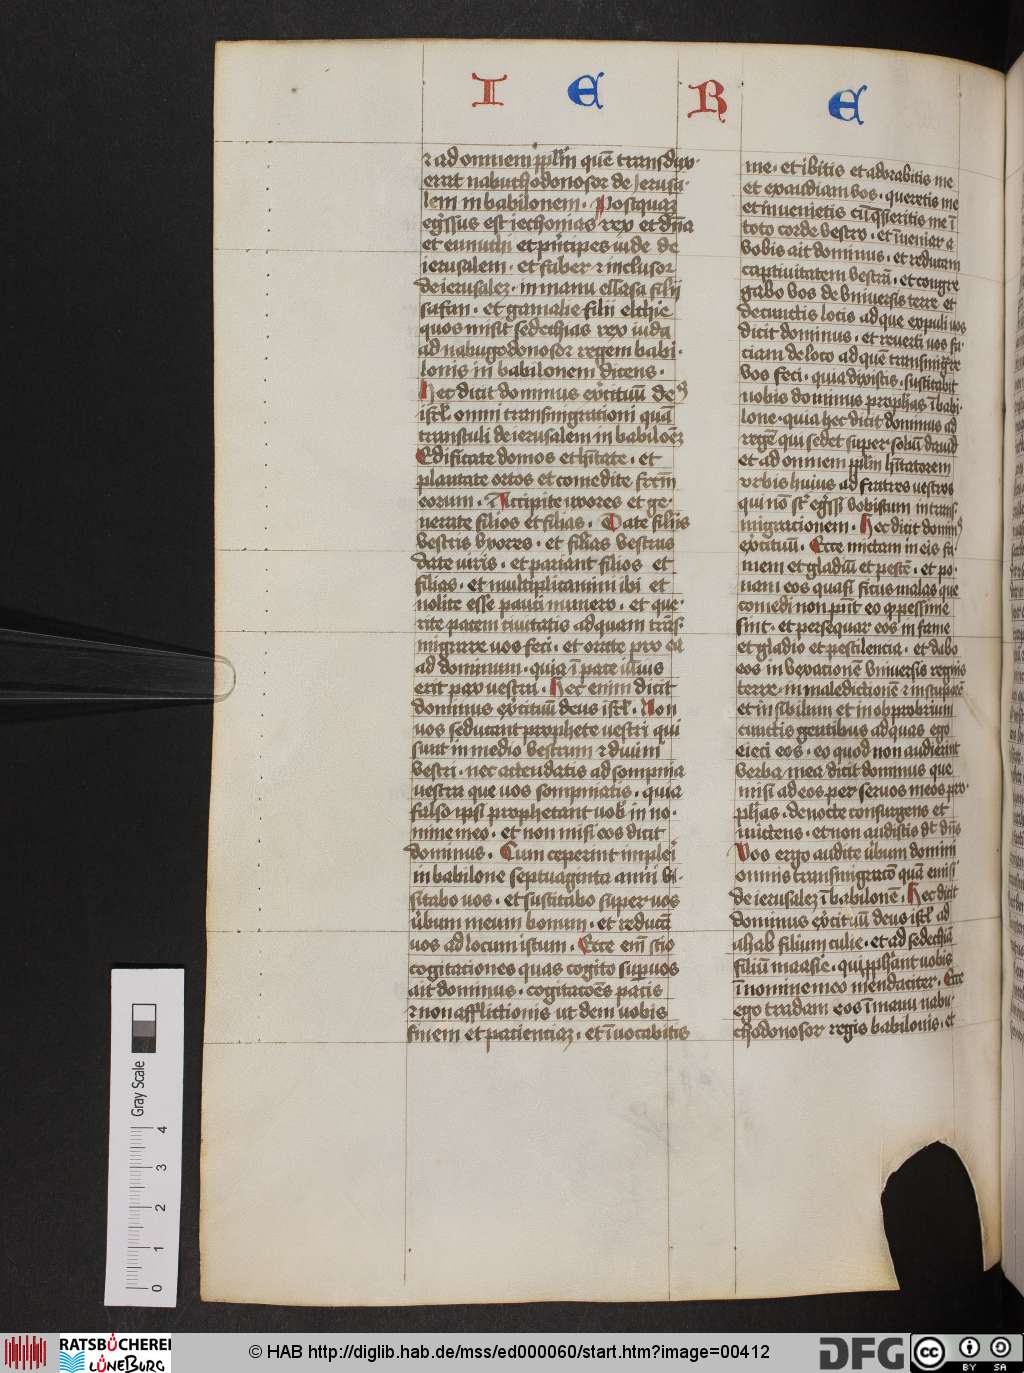 I E R E
⁊ ad omnem pplm̄ quē transdux·
erat nabuchodonosor de Jerusa·
lem in babilonem · Postquaꝫ
eg̃ssus est iechonias rex et dn̄a
et eunuchi et p̃ncipes iude de
ierusalem · et faber ⁊ inclusor
de ierusaleꝫ · in manu ellasa filij
safan · et gamalie filij elchie
quos misit sedechias rex iuda
ad nabugodonosor regem babi·
lonis in babilonem dicens ·
Hec dicit dominus exˀcituū deꝰ
isrl̄ omni transmigrationi quā
transtuli de ierusalem in babiloēꝫ
Edificate domos et hītate · et
plantate ortos et comedite frc̄m
eorum · Accipite uxores et ge·
nerate filios et filias · Date filijs
vestris vxores · et filias vestras
date viris · et pariant filios et
filias · et multiplicamini ibi et
nolite esse pauci numero · et que·
rite pacem ciuitatis ad quam trās·
migrare uos feci · et orate pro ea
ad dominum · quia ī pace illius
erit pax vestra · Hec enim dicit
dominus exˀcituū deus isrl̄ · Non
uos seducant prophete vestri qui
sunt in medio vestrum ⁊ diuini
vestri · nec attendatis ad sompnia
vestra que uos sompniatis · quia
falso ipsi prophetant uob̄ in no·
mine meo · et non misi eos dicit
dominus · Cum ceperint implei
in babilone septuaginta anni vi·
sitabo uos · et suscitabo super uos
ũbum meum bonum · et reducā
uos ad locum istum · Ecce em̄ scio
cogitationes quas cogito suꝑ uos
ait dominus · cogitatōēs pacis
⁊ non afflictionis ut dem uobis
finem et patienciaꝫ · et īuocabitis
me · et ibitis et adorabitis me
et exaudiam vos · queretis me
et inuenietis cū q̄sieritis me ī
toto corde vestro · et īueniar a
vobis ait dominus · et reducam
captiuitatem vestrā · et congre
gabo vos de vniuersis terre et
de cunctis locis ad que expuli uos
dicit dominus · et reuerti uos fa·
ciam de loco ad quē transmig̃re
vos feci · quia dixistis · suscitabit
uobis dominus prophas ī babi·
lone · quia hec dicit dominus ad
regē qui sedet super soliū dauid
et ad omnem pplm̄ hītatorem
vrbis huius ad fratres vestros
qui nō st̄ eg̃ssi vobiscum in trans·
migracionem · Hec dicit domin̄ꝰ
exˀcituū · Ecce mictam in eis fa·
mem et gladiū et pestē · et po·
nam eos quasi ficus malas que
comedi non pn̄t eo ꝙ pessime
sint · et persequar eos in fame
et gladio et pestilencia · et dabo
eos in vexacionē vniuersis regnis
terre · in maledictionē ⁊ in stuporē
et in sibilum et in obprobrium
cunctis gentibus ad quas ego
eieci eos · eo quod non audierint
verba mea dicit dominus que
misi ad eos per seruos meos pro·
phās · de nocte consurgens et
mictens · et non audistis dt̄ dn̄s
Vos ergo audite ũbum domini
omnis transmigratō quā emisi
de ierusaleꝫ ī babilonē · Hec dicit
dominus exˀcituū deus isrl̄ ad
ahab filium culie · et ad sedechiā
filiū maasie · qui pphāt uobis
ī nomine meo mendaciter · Ecce
ego tradam eos ī manu nabu·
chodonosor regis babilonis · et
Gray Scale
4
3
2
1
0
RATSBÜCHEREI
LÜNEBURG
© HAB http://diglib.hab.de/mss/ed000060/start.htm?image=00412
DFG
cc BY SA